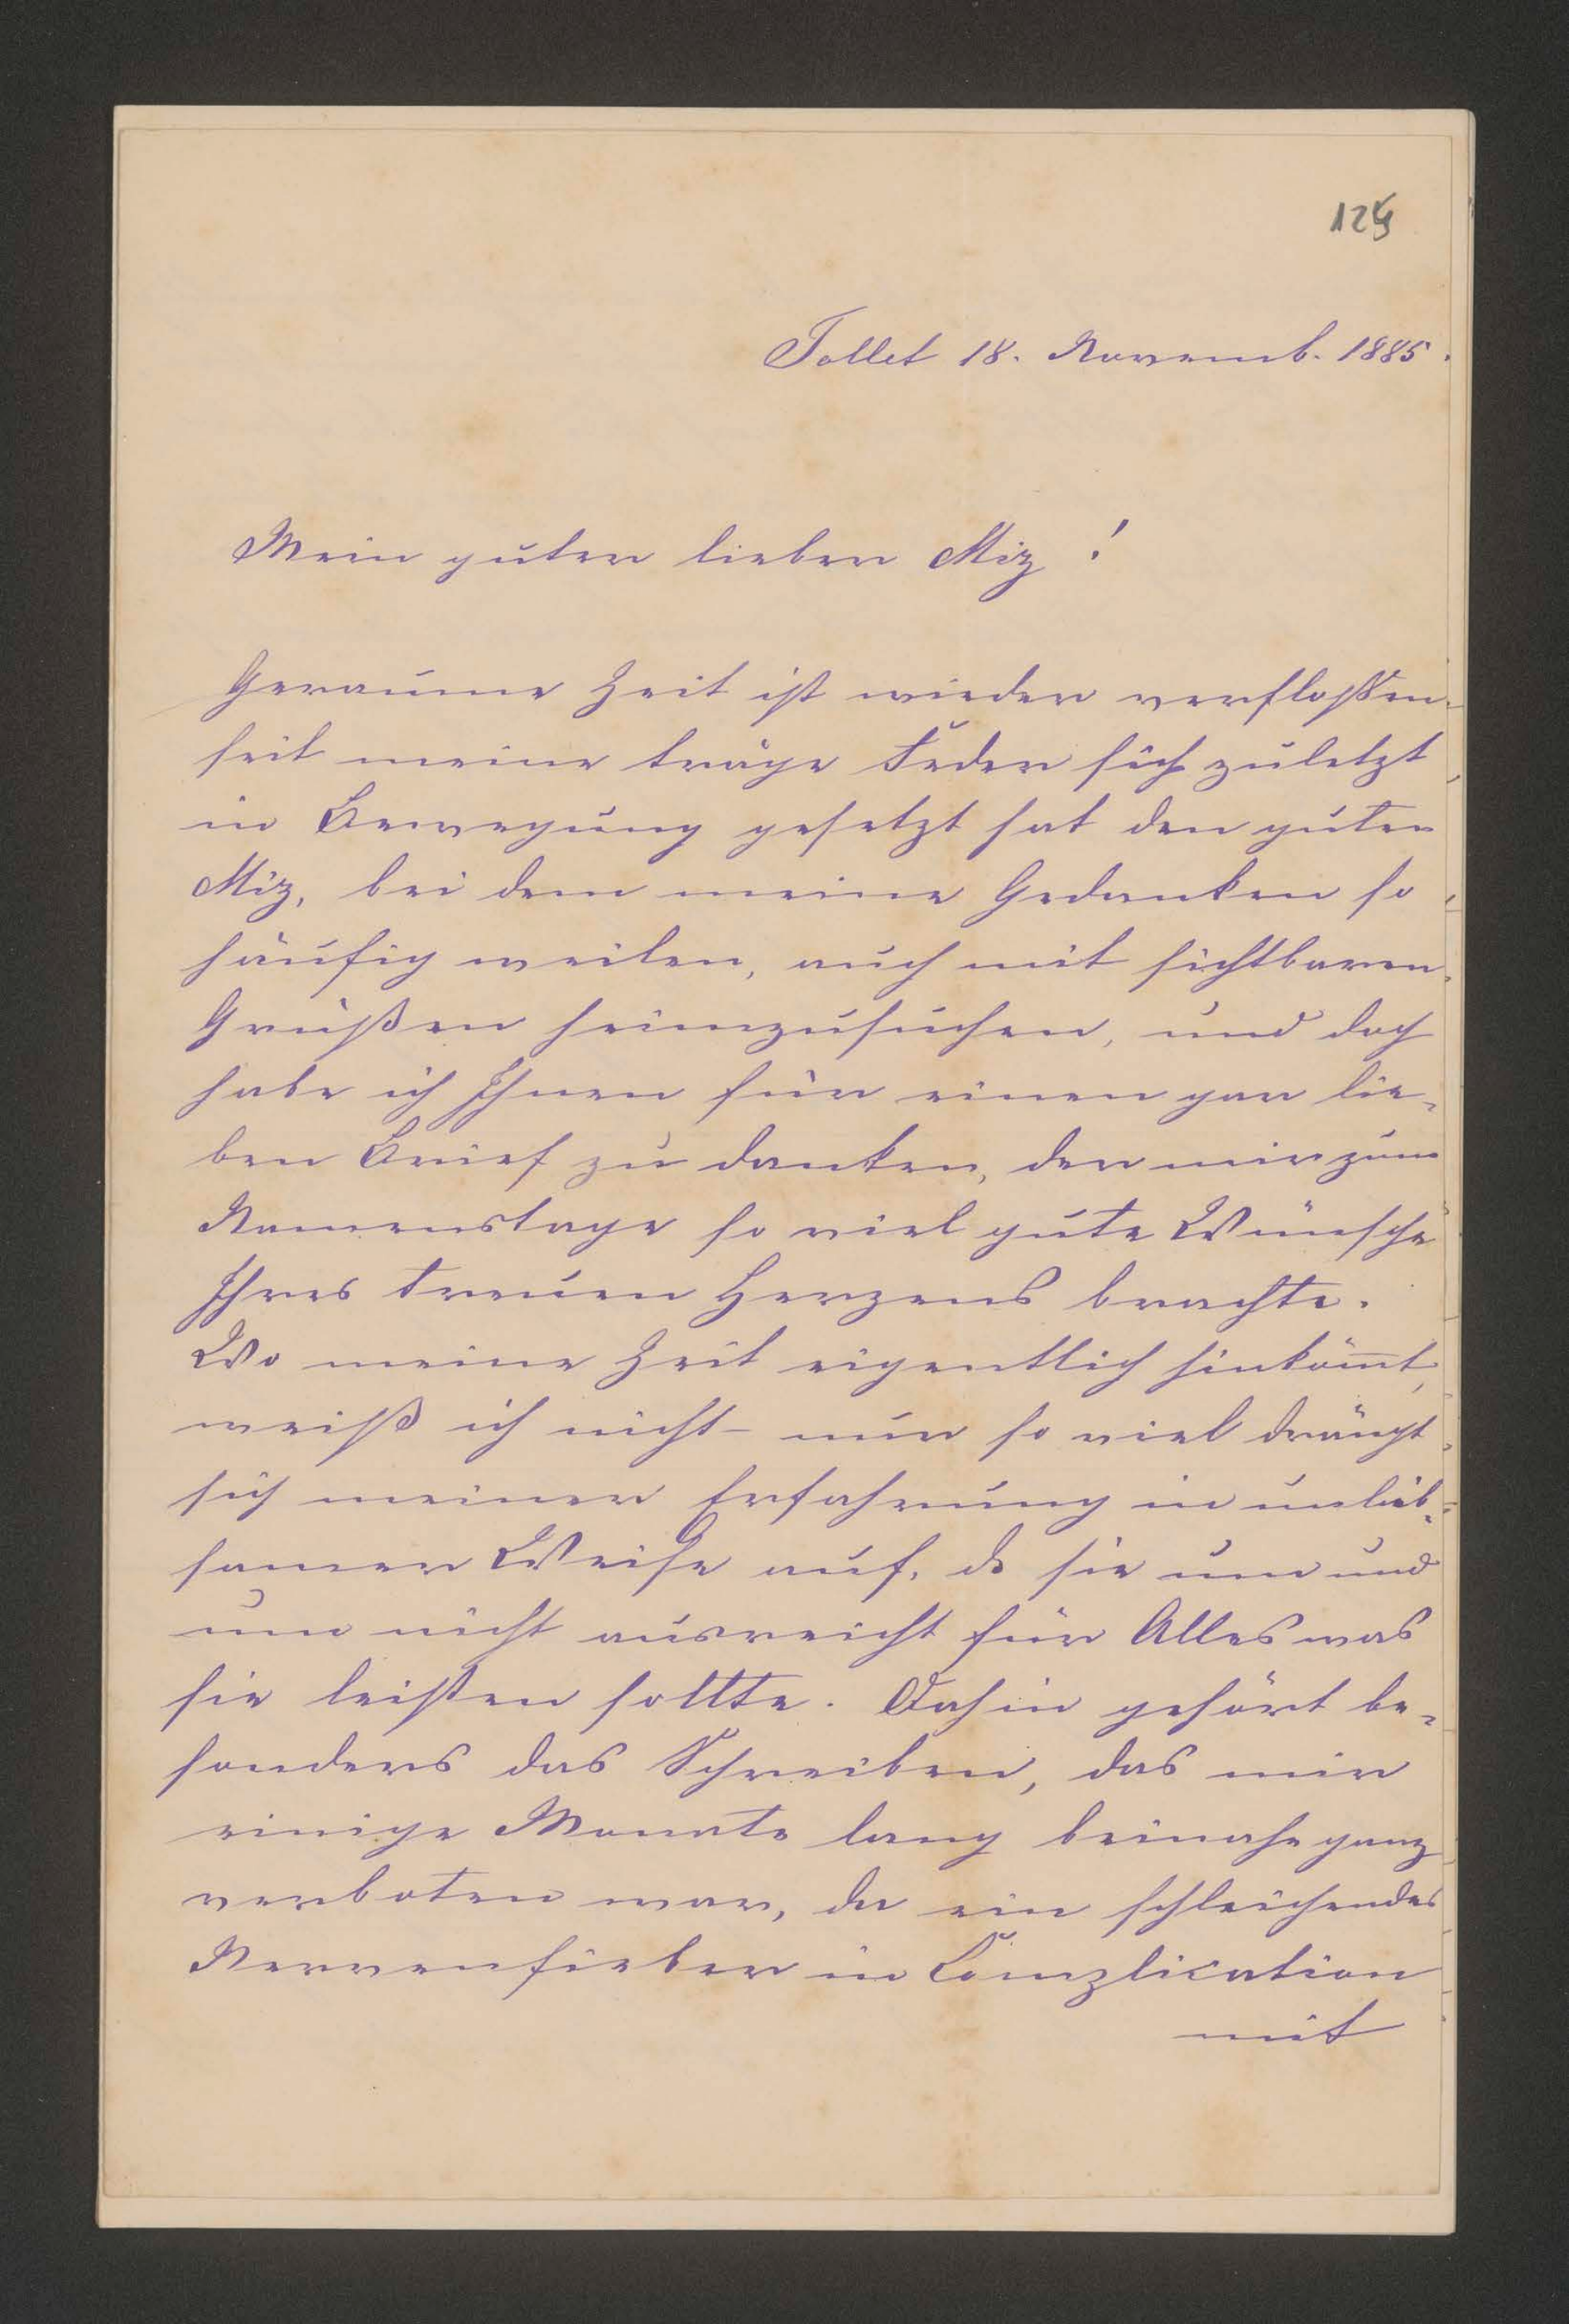 Tollet 18. Novemb. 1885.
Mein guter lieber Miz!
Geraume Zeit ist wieder verflossen
seit meine träge Feder sich zuletzt
in Bewegung gesetzt hat den guten
Miz, bei dem meine Gedanken so
häufig weilen, auch mit sichtbaren
Grüßen heimzusuchen, und doch
habe ich Ihnen für einen gar lie-
ben Brief zu danken, der mir zum
Namenstage so viel gute Wünsche
Ihres treuen Herzens brachte.
Wo meine Zeit eigentlich hinkömmt,
weiß ich nicht - nur so viel drängt
sich meiner Erfahrung in unlieb-
samer Weise auf, dß sie um und
um nicht ausreicht für Alles was
sie leisten sollte. Dahin gehört be-
sonders das Schreiben, das mir
einige Monate lang beinahe ganz
verboten war, da ein schleichendes
Nervenfieber in Complication
mit